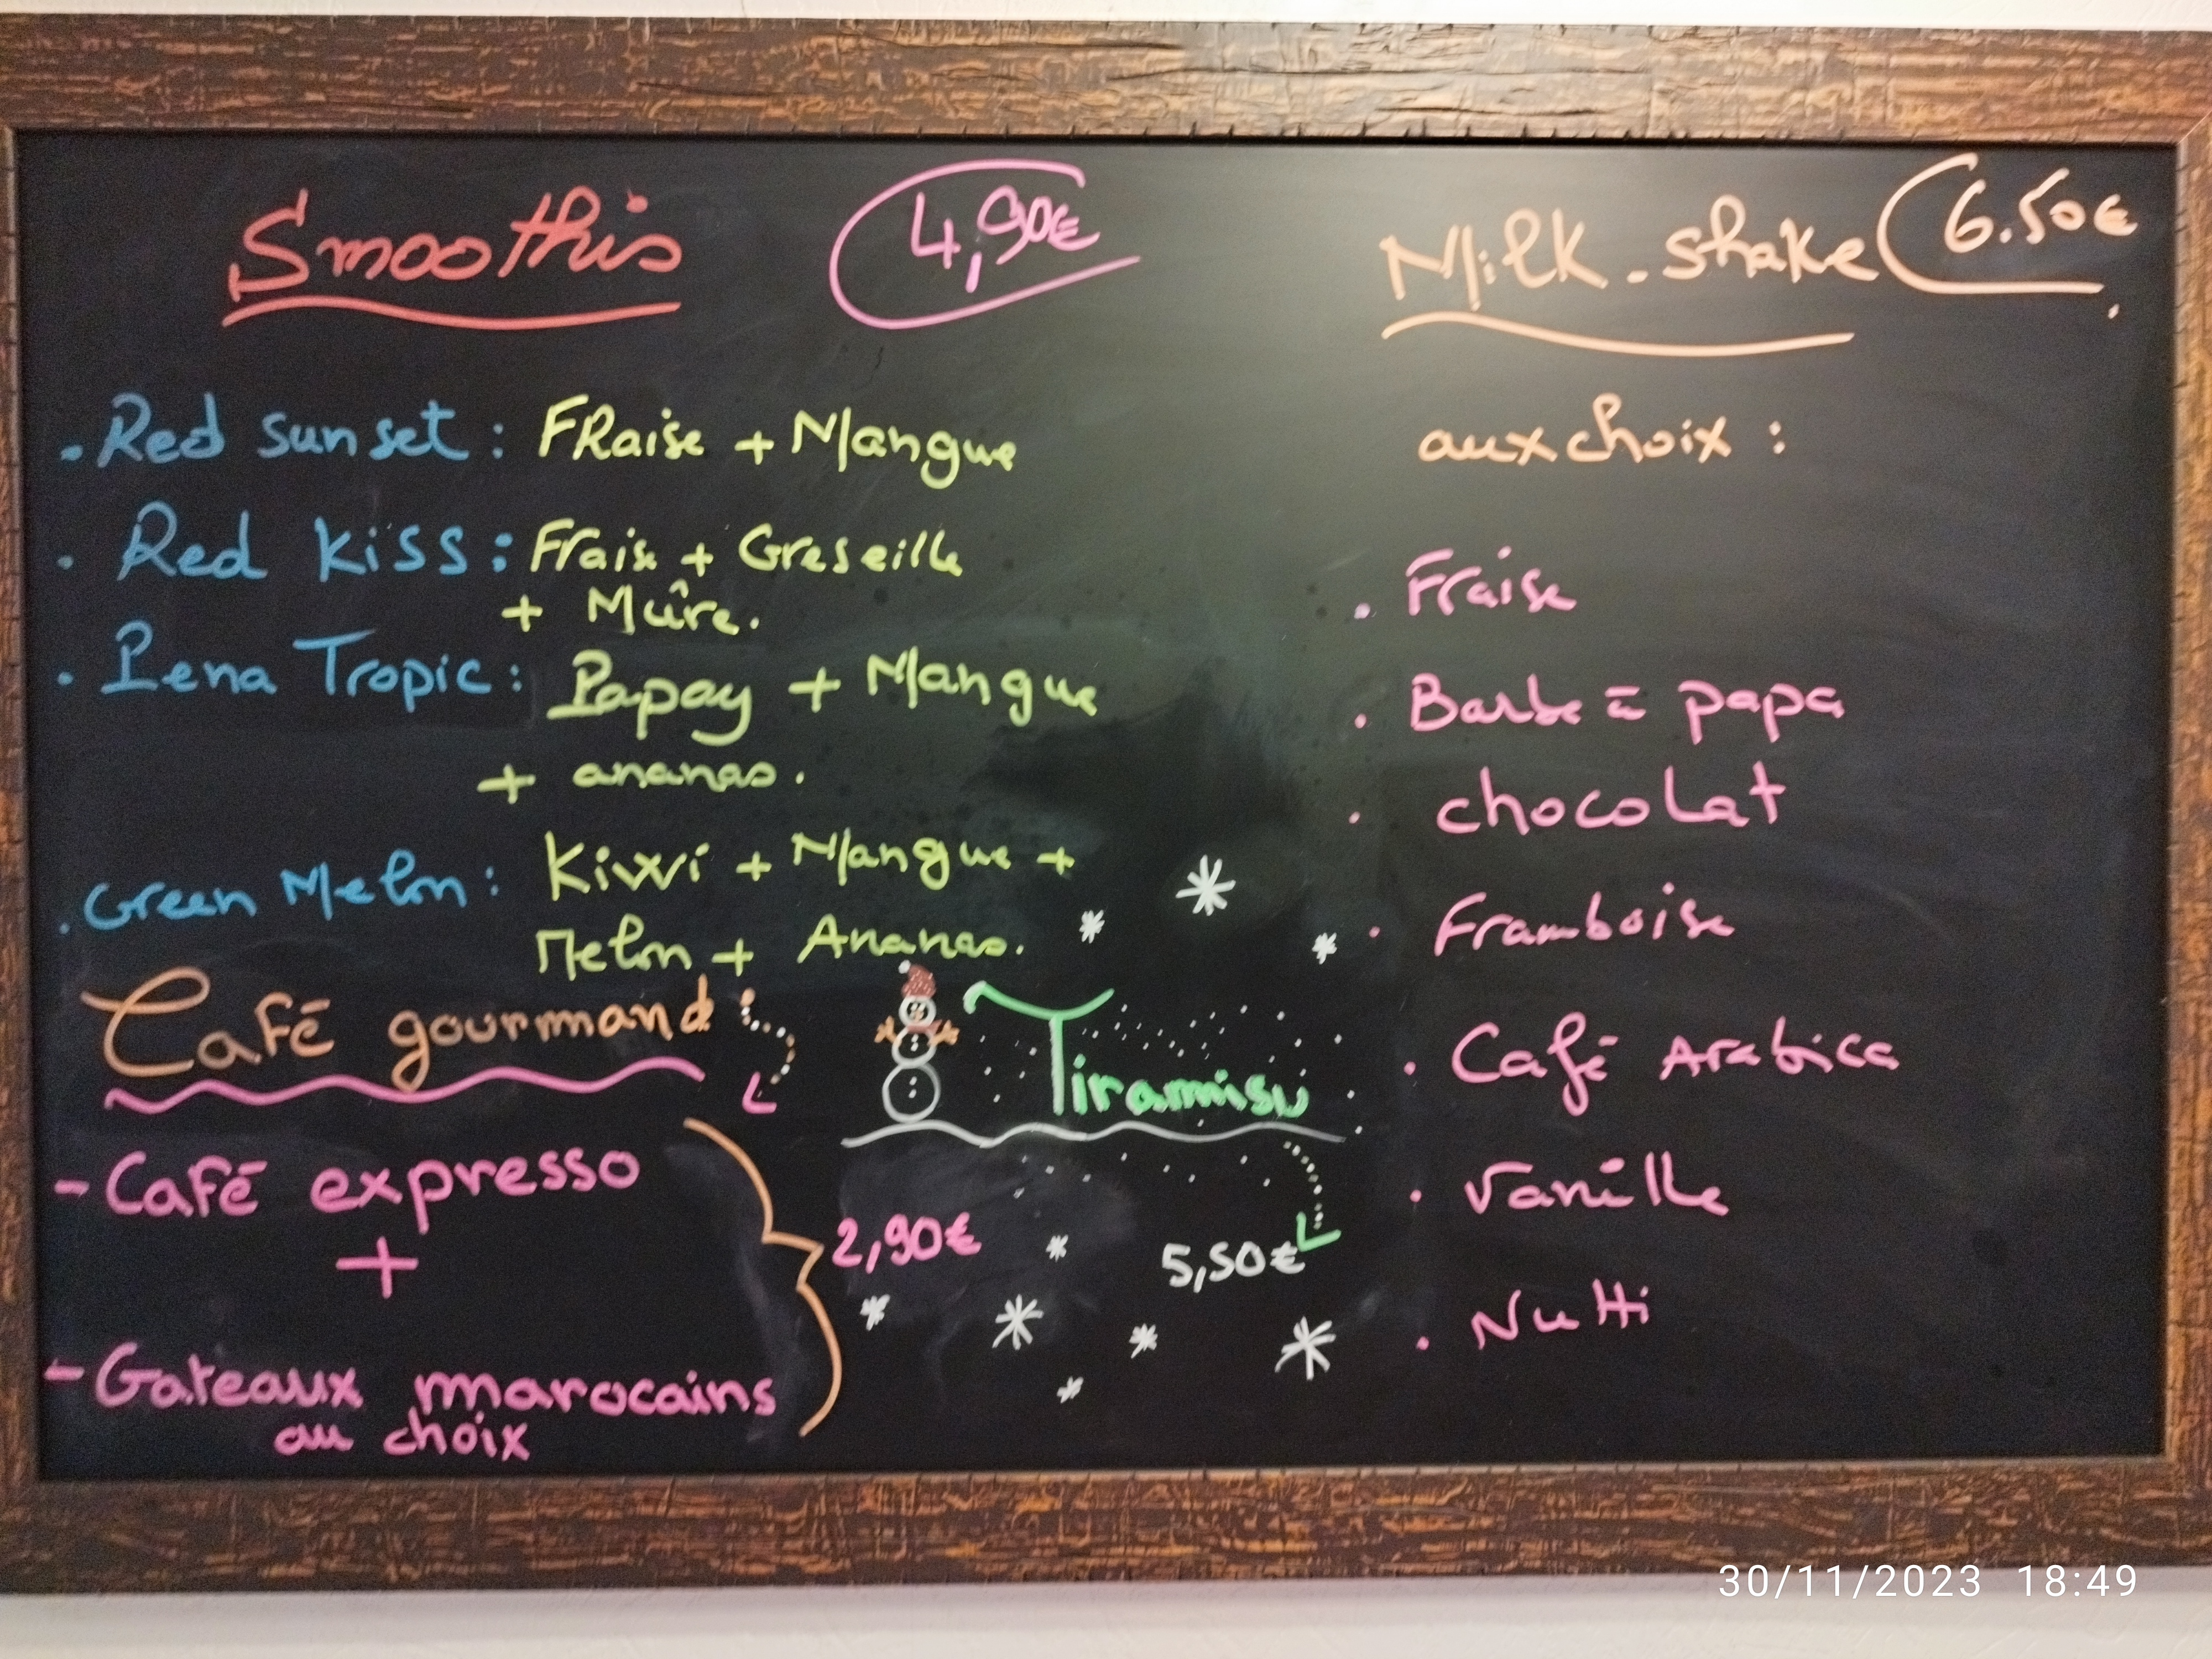 Smoothis
4,90€
. Red Sunset : FRaise + Mangue
. Red Kiss : Frais + Greseille
+ Mûre.
. Pena Tropic : Papay + Mangue
+ ananas.
. Green Melon : Kiwi + Mangue +
Melon + Ananas.
Café gourmand :
- Café expresso
+
- Gateaux marocains
au choix
2,90€
Tiramisu
5,50€
Milk-shake 6.50€
aux choix :
. Fraise
. Barbe à papa
. chocolat
. Framboise
. Café Arabica
. Vanille
. Nutti
30/11/2023 18:49